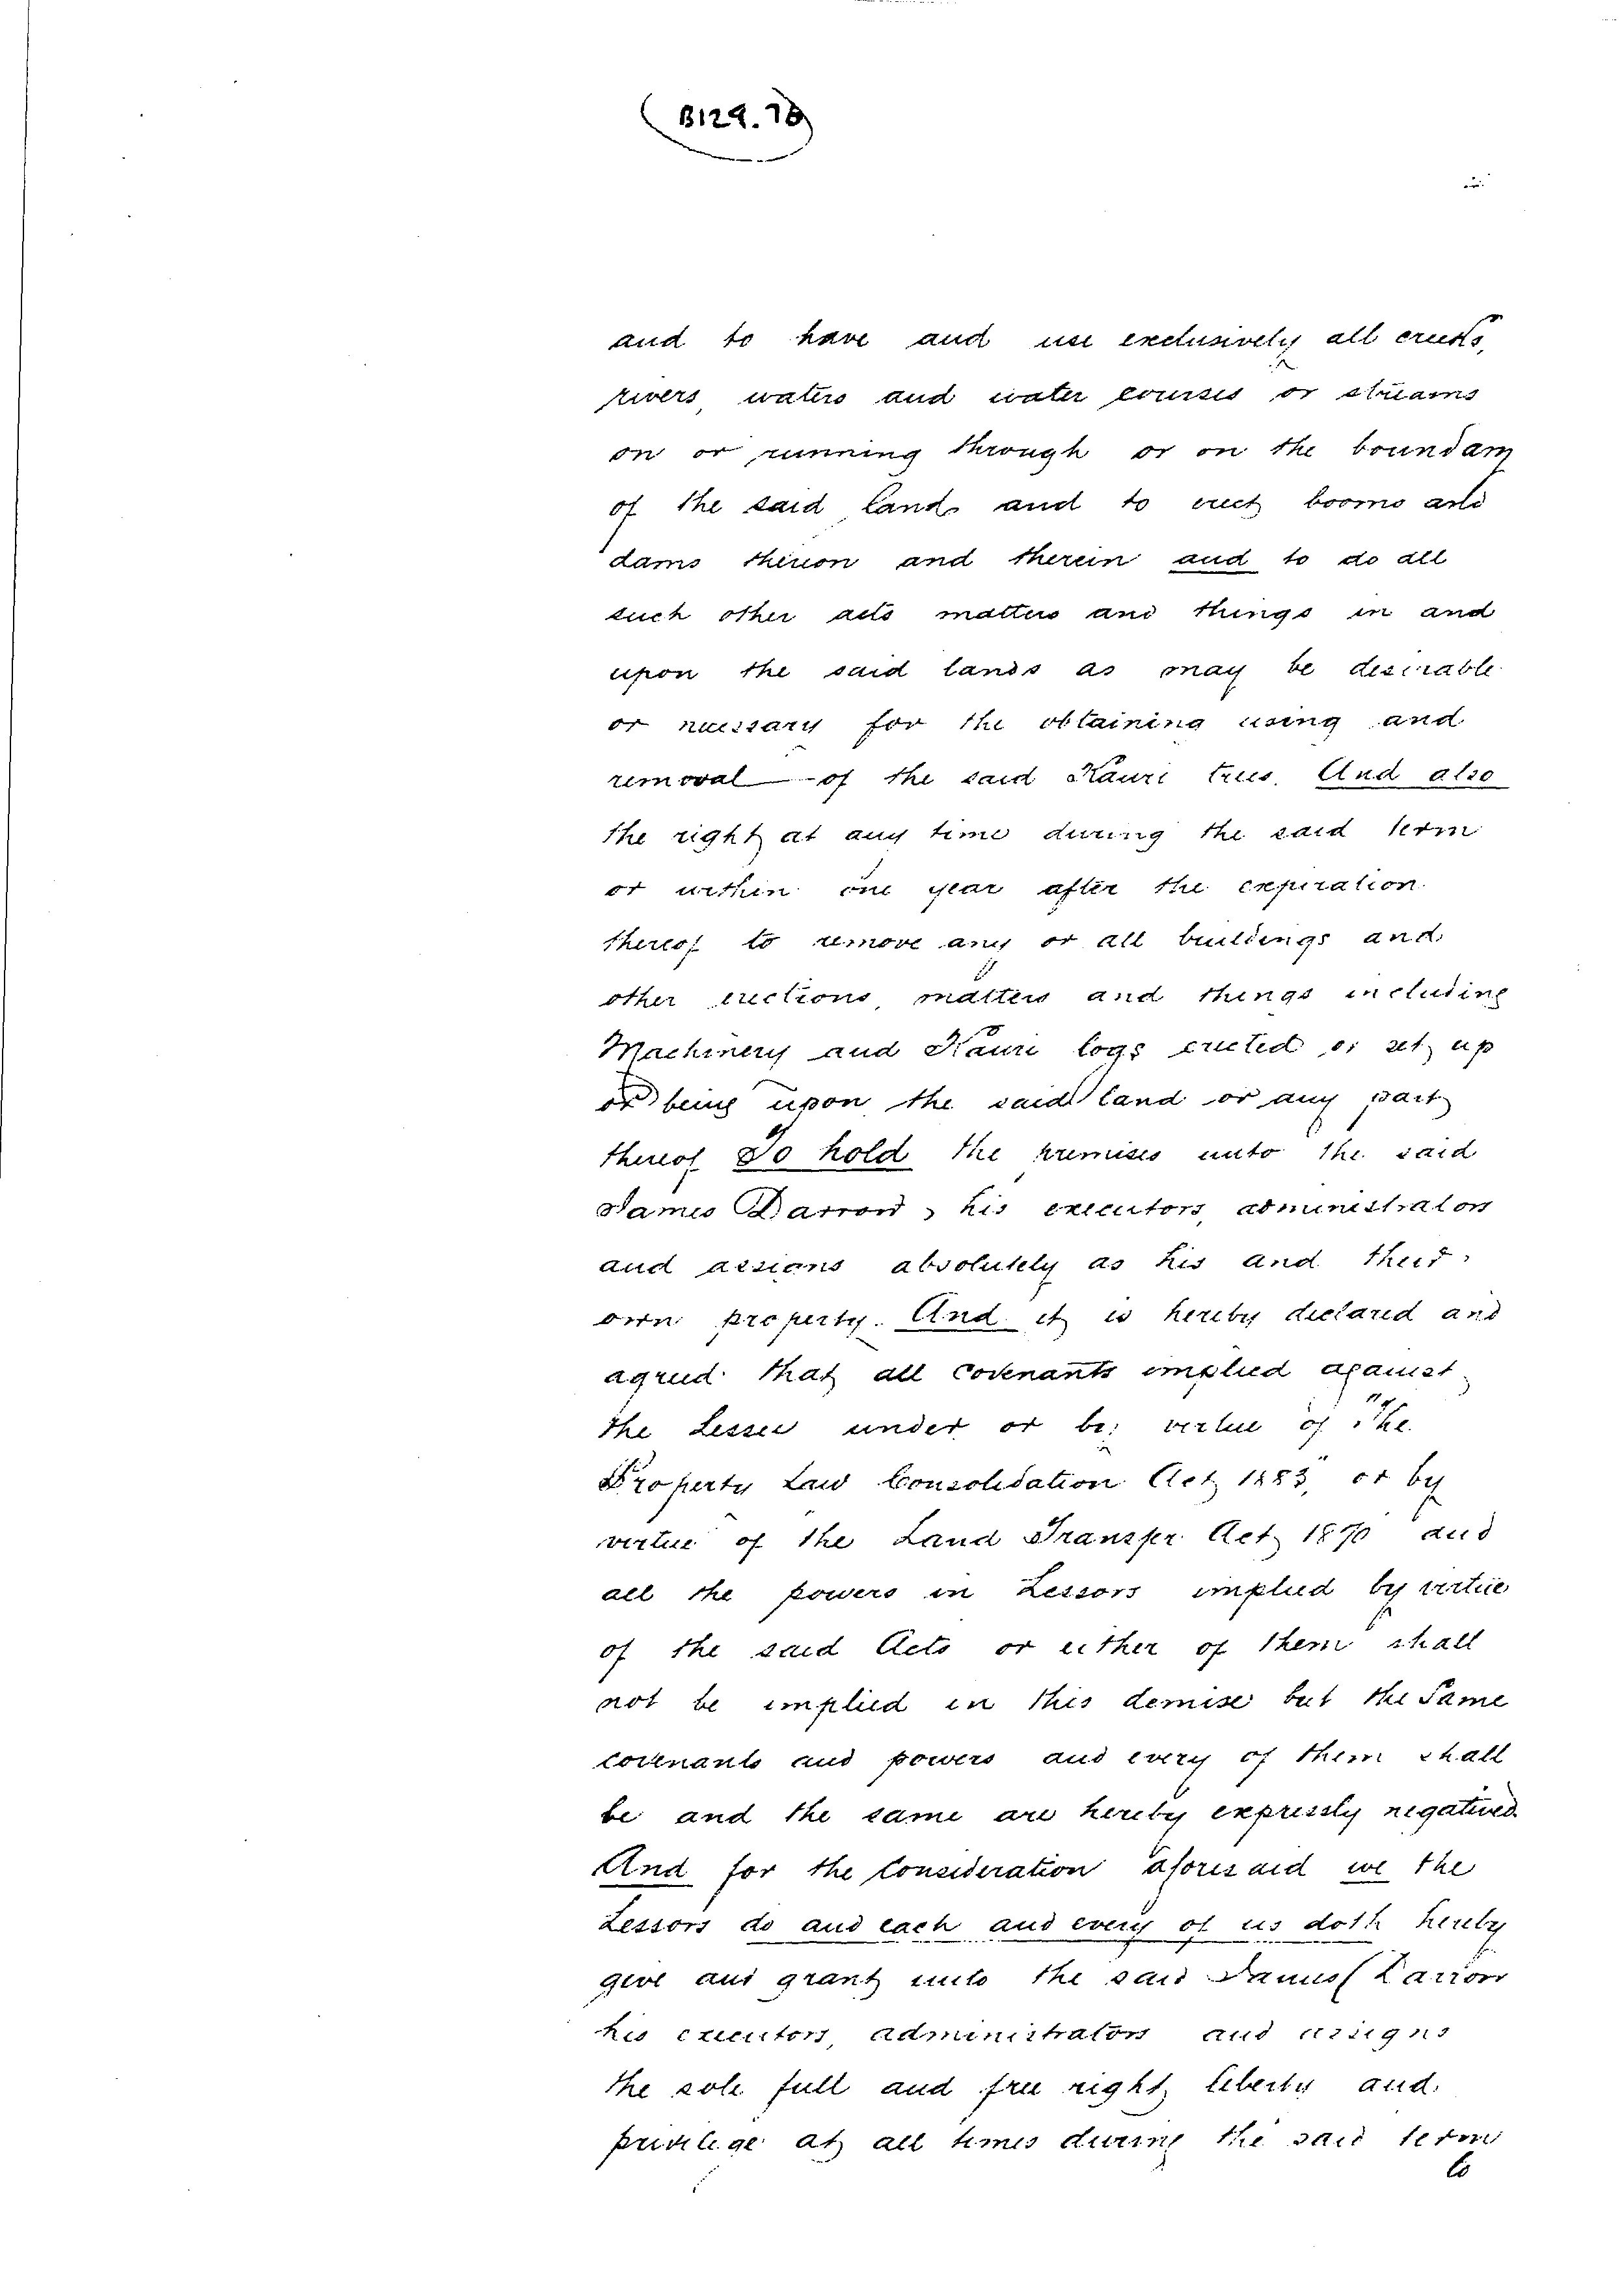 (B129.78)
and to have and use exclusively all creeks,
rivers, waters and water courses or streams
on or running through or on the boundary
of the said lands and to erect booms and
dams thereon and therein and to do all
such other acts matters and things in and
upon the said lands as may be desirable
or necessary for the obtaining using and
removal of the said Kauri trees. And also
the right at any time during the said term
or within one year after the expiration
thereof to remove any or all buildings and
other erections, matters and things including
Machinery and Kauri logs erected or set up
or being upon the said land or any part
thereof To hold the premises unto the said
James Barron, his executors, administrators
and assigns absolutely as his and their
own property. And it is hereby declared and
agreed that all covenants implied against
the Lessee under or by virtue of "The
Property Law Consolidation Act 1883" or by
virtue of the Land Transfer Act 1870 and
all the powers in Lessors implied by virtue
of the said Acts or either of them shall
not be implied in this demise but the Same
covenants and powers and every of them shall
be and the same are hereby expressly negatived
And for the Consideration aforesaid we the
Lessors do and each and every of us doth hereby
give and grant unto the said James Barron
his executors, administrators and assigns
the sole full and free right, liberty and
privilege at all times during the said term
to